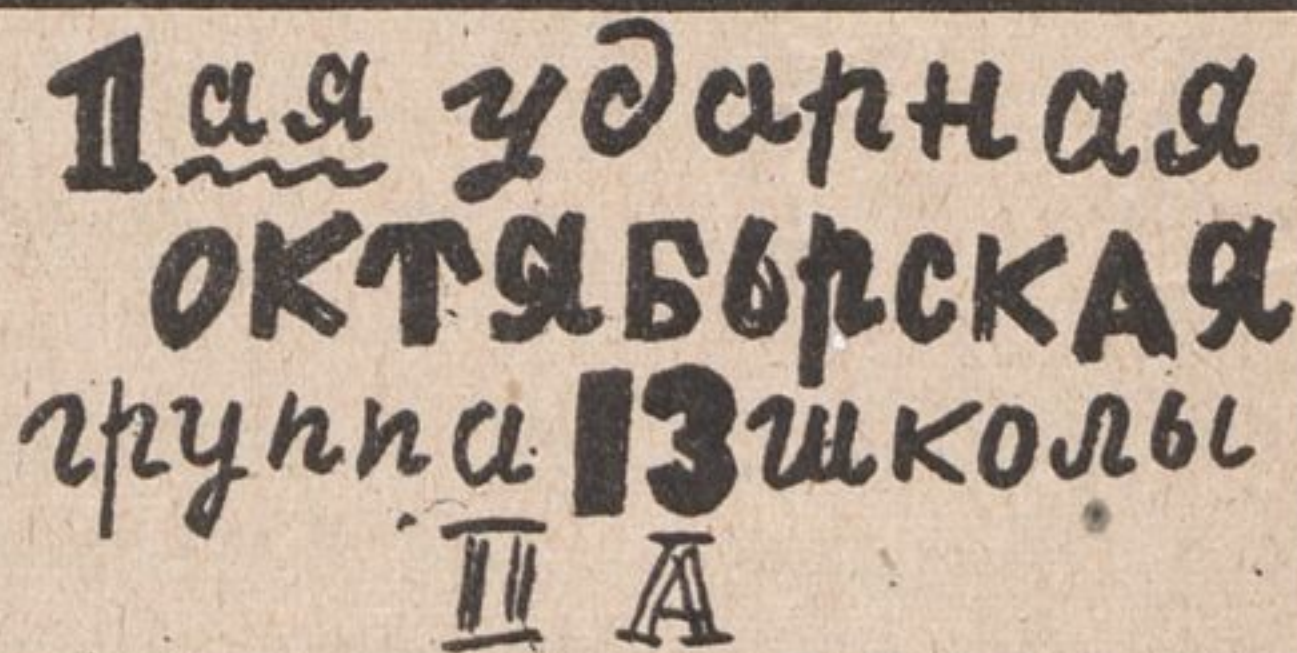 1ая ударная
ОКТЯБЬРСКАЯ
группа 13 школы
II А